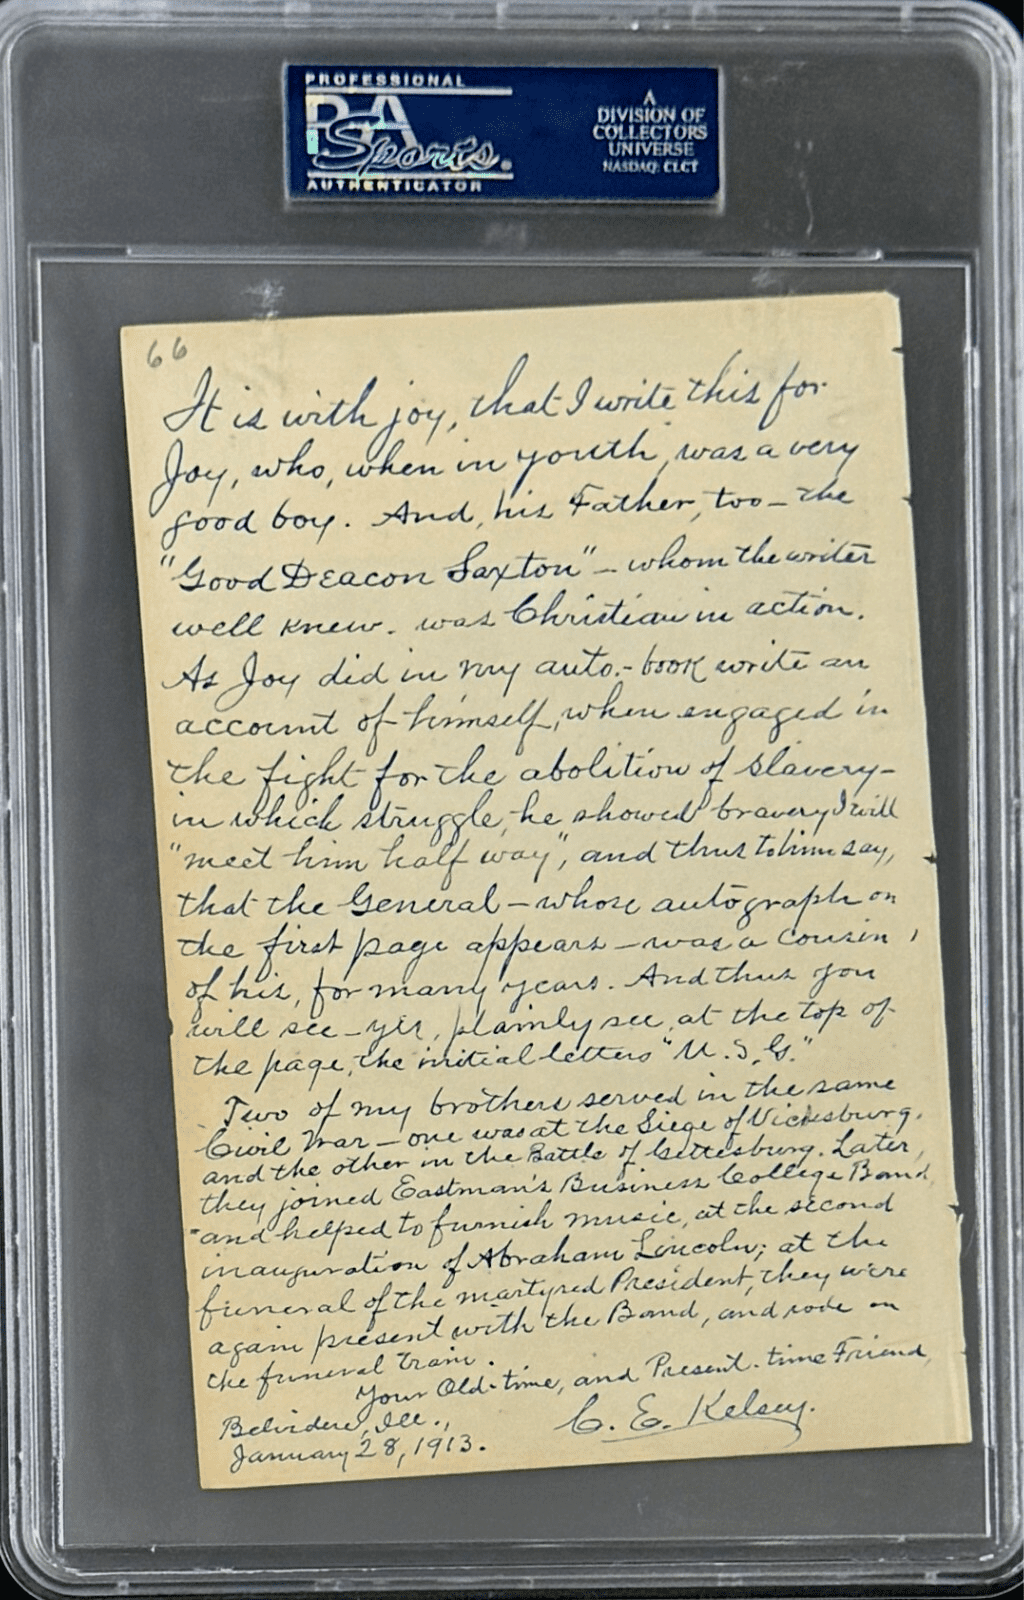 PROFESSIONAL
PSA
Sports
AUTHENTICATOR
A
DIVISION OF
COLLECTORS
UNIVERSE
NASDAQ: CLCT
66
It is with joy, that I write this for
Joy, who, when in youth, was a very
good boy. And, his Father, too – the
"Good Deacon Saxton" – whom the writer
well knew. was Christian in action.
As Joy did in my auto.-book write an
account of himself, when engaged in
the fight for the abolition of slavery –
in which struggle, he showed bravery I will
"meet him half way", and thus to him say,
that the General – whose autograph on
the first page appears – was a cousin,
of his, for many years. And thus you
will see – yes, plainly see, at the top of
the page, the initial letters "U. S. G."
Two of my brothers served in the same
Civil War – one was at the Siege of Vicksburg,
and the other in the Battle of Gettesburg. Later,
they joined Eastman's Business College Band,
and helped to furnish music, at the second
inauguration of Abraham Lincoln; at the
funeral of the martyred President, they were
again present with the Band, and rode on
the funeral train.
Your Old-time, and Present-time Friend,
Belvidere, Ill.,
C. E. Kelsey.
January 28, 1913.